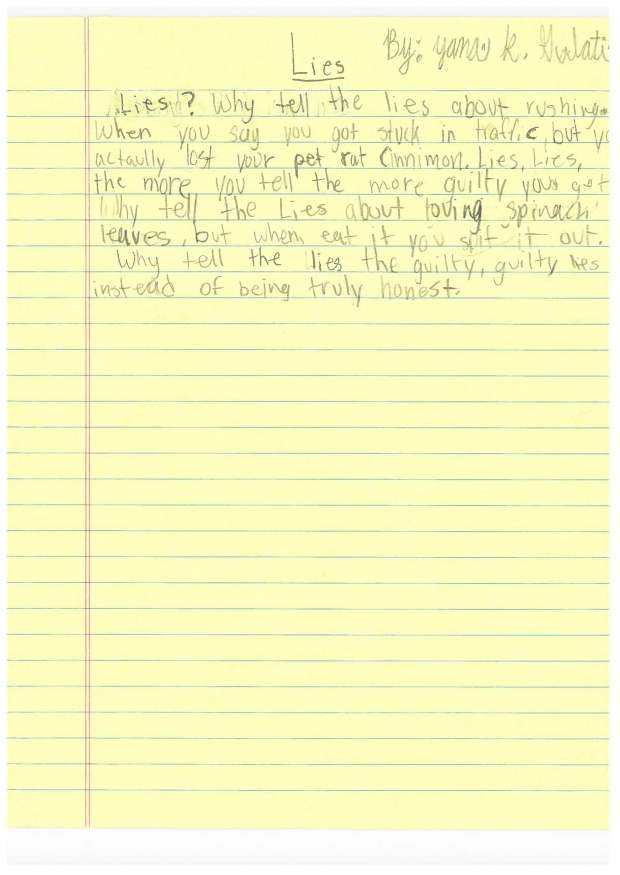 Lies
By: yana K. Gulati
Lies? Why tell the lies about rushing.
When you say you got stuck in traffic, but yo
actaully lost your pet rat Cinnimon. Lies, Lies,
the more you tell the more guilty you get
Why tell the Lies about loving spinach
leaves, but when eat it you spit it out.
Why tell the lies the guilty, guilty lies
instead of being truly honest.